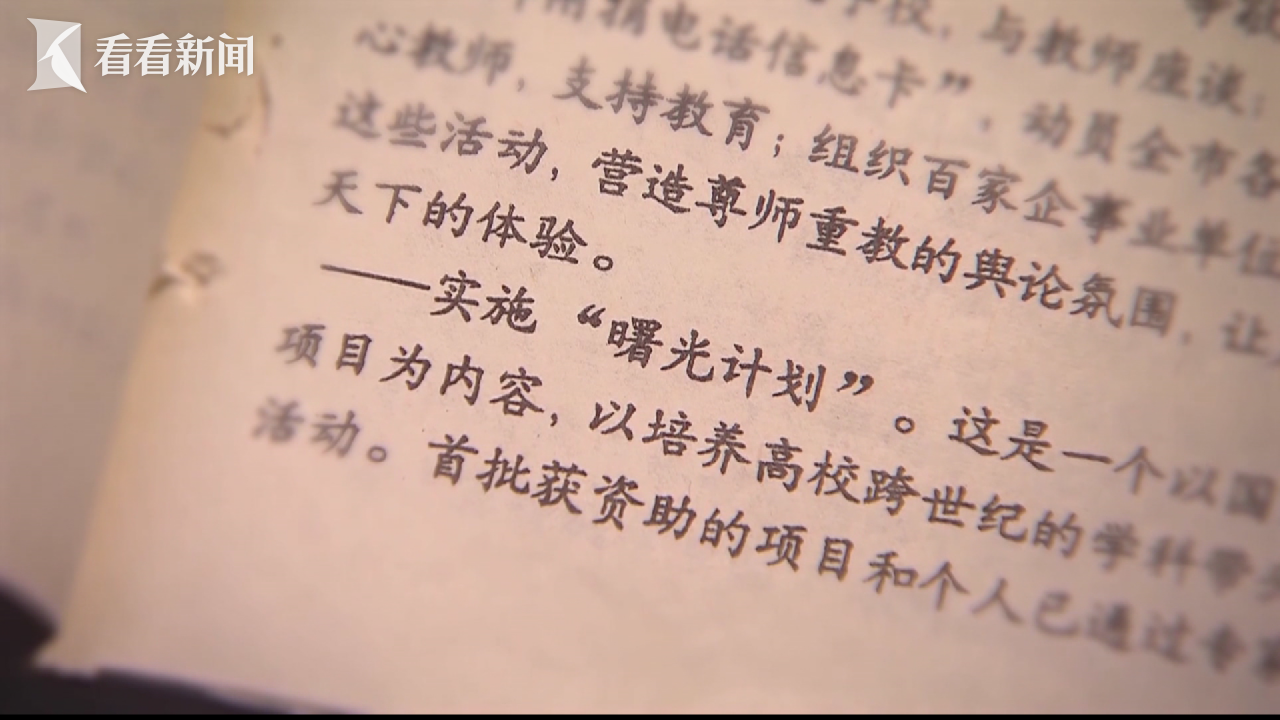 看看新闻
等教
学校，与教师座谈；
捐电话信息卡”，动员全市各
心教师，支持教育；组织百家企事业单位
这些活动，营造尊师重教的舆论氛围，让
天下的体验。
——实施“曙光计划”。这是一个以国
项目为内容，以培养高校跨世纪的学科带头
活动。首批获资助的项目和个人已通过专家